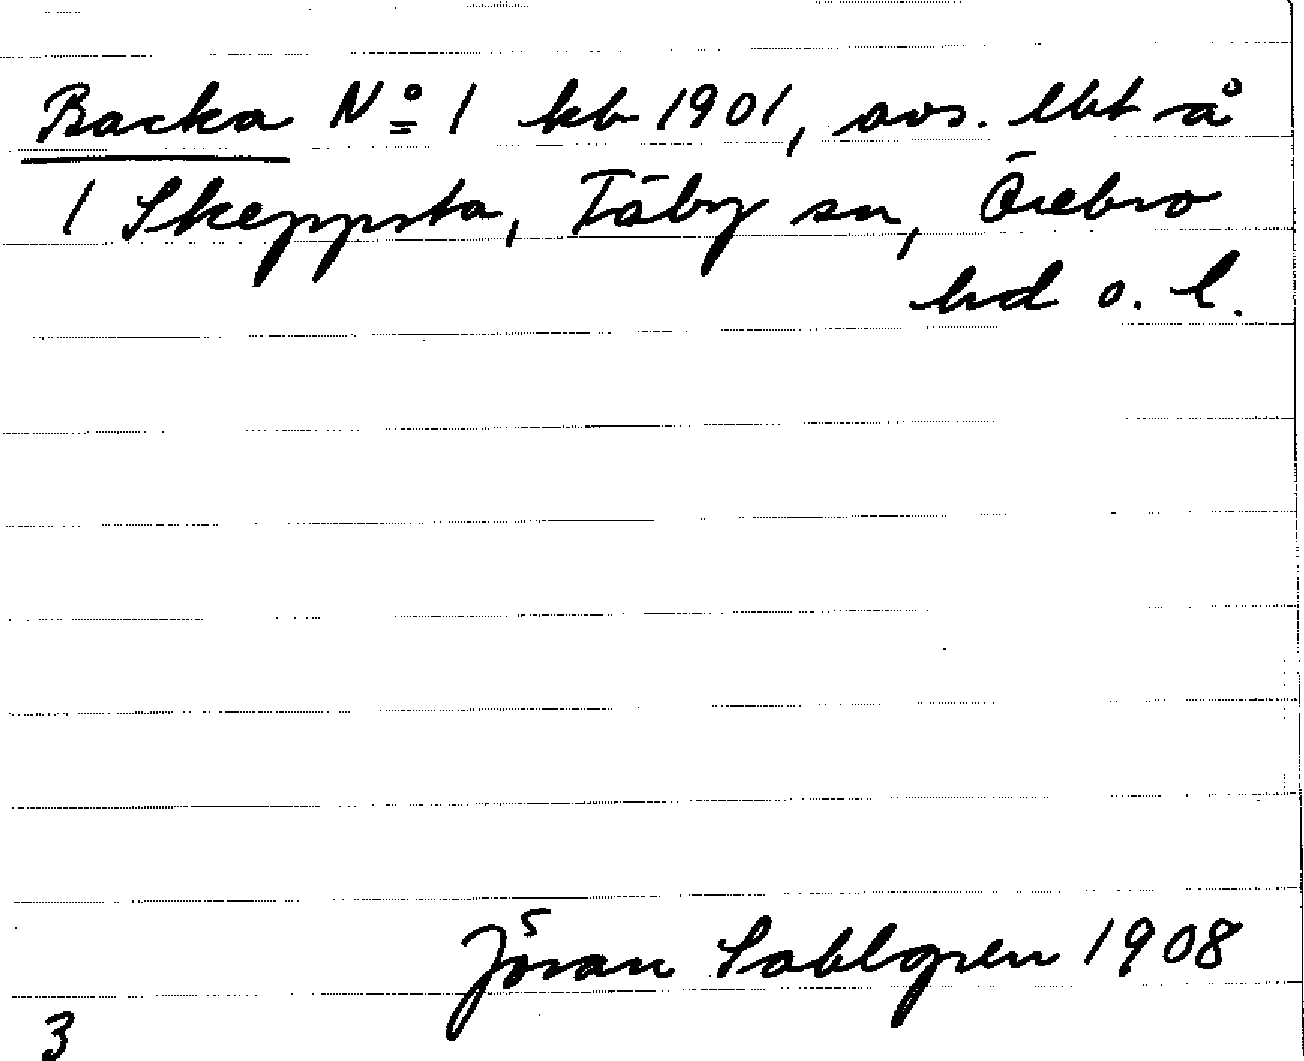 Backa Nº 1 kb 1901, avs. lht å
1 Skeppsta, Täby sn, Örebro
hd o. l.
Jöran Sahlgren 1908
3